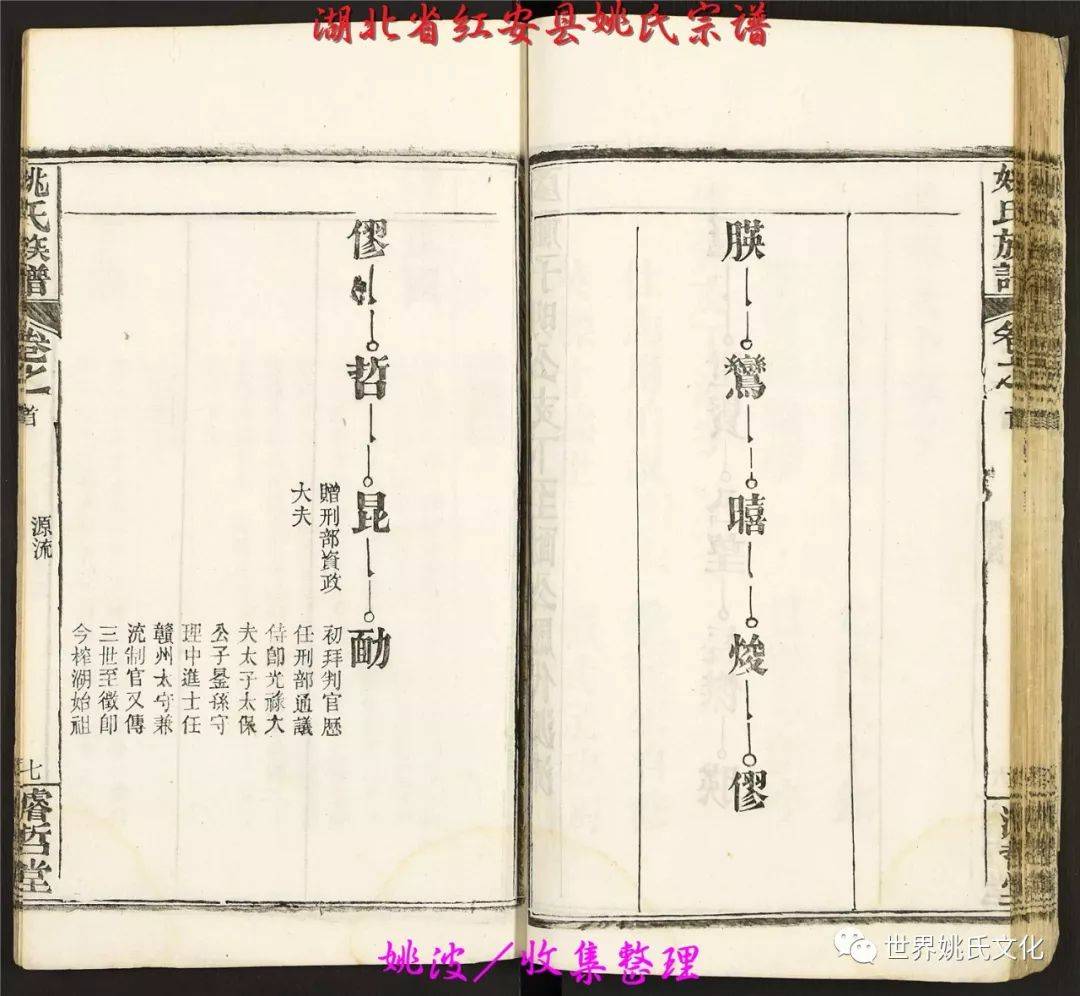 湖北省红安县姚氏宗谱
姚氏族譜
卷之
首
朠
鸞
暿
焌
僇
僇
哲
昆
贈刑部資政
大夫
勔
初拜判官歷
任刑部通議
侍郎光祿大
夫太子太保
公子晏孫守
理中進士任
贛州太守兼
流制官又傳
三世至徵郎
今榨湖始祖
姚氏族譜
卷之
首
源流
七
睿哲堂
姚波/收集整理
世界姚氏文化